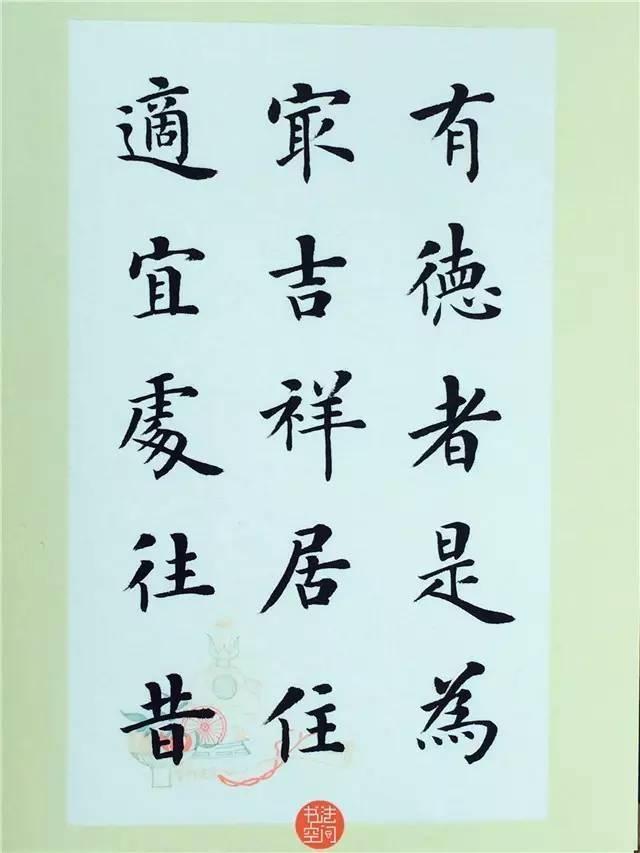 有德者是為
冣吉祥居住
適宜處往昔
书法
空间